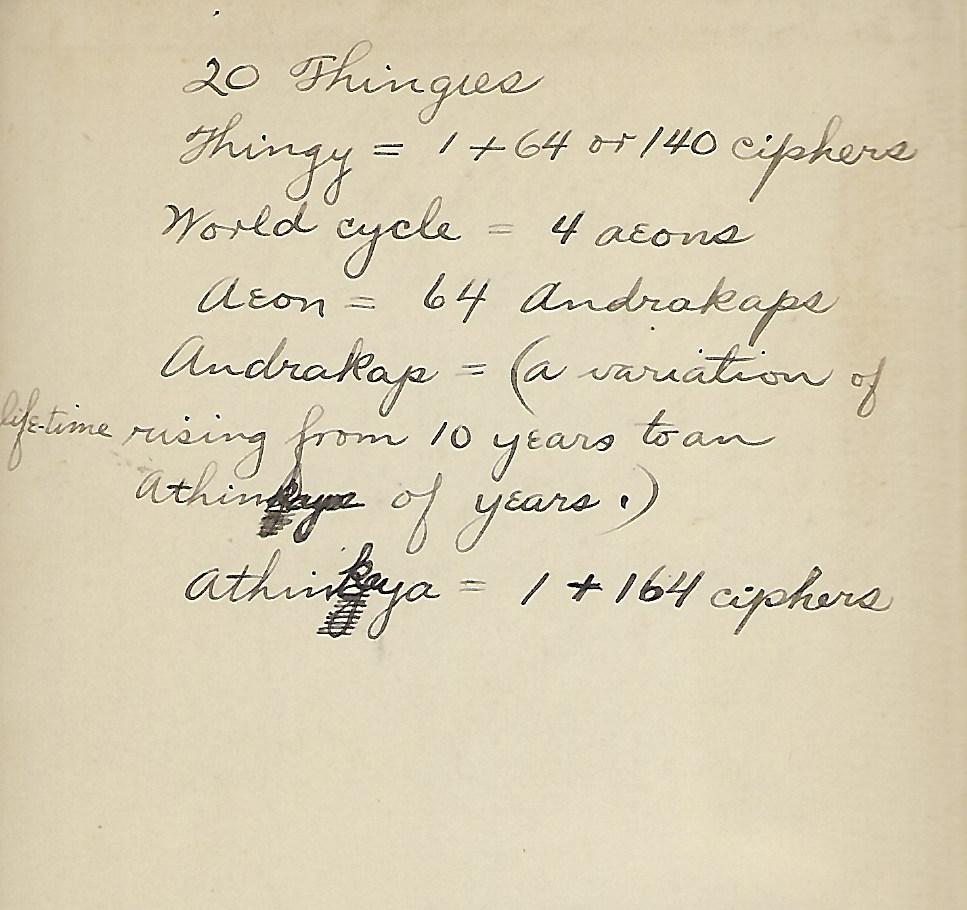 20 Thingies
Thingy = 1 + 64 or 140 ciphers
World cycle = 4 aeons
Aeon = 64 Andrakaps
Andrakap = (a variation of
life-time rising from 10 years to an
of years.)
Athinkeya = 1 + 164 ciphers